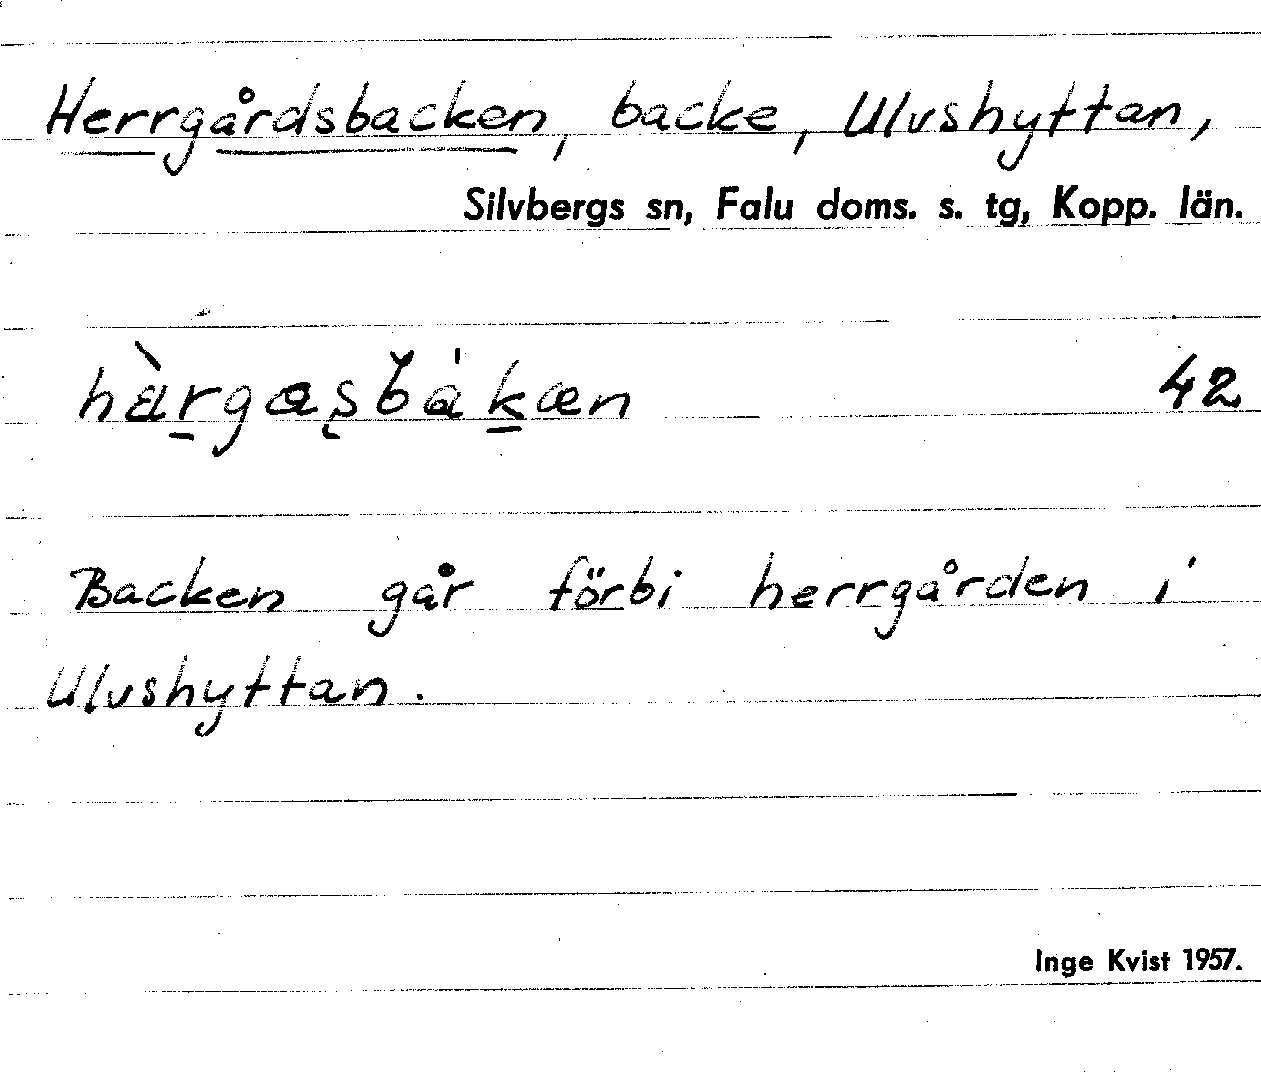 Herrgårdsbacken, backe, Ulvshyttan,
Silvbergs sn, Falu doms. s. tg, Kopp. län.
hàrgasbákæn 42
Backen går förbi herrgården i
Ulvshyttan.
Inge Kvist 1957.